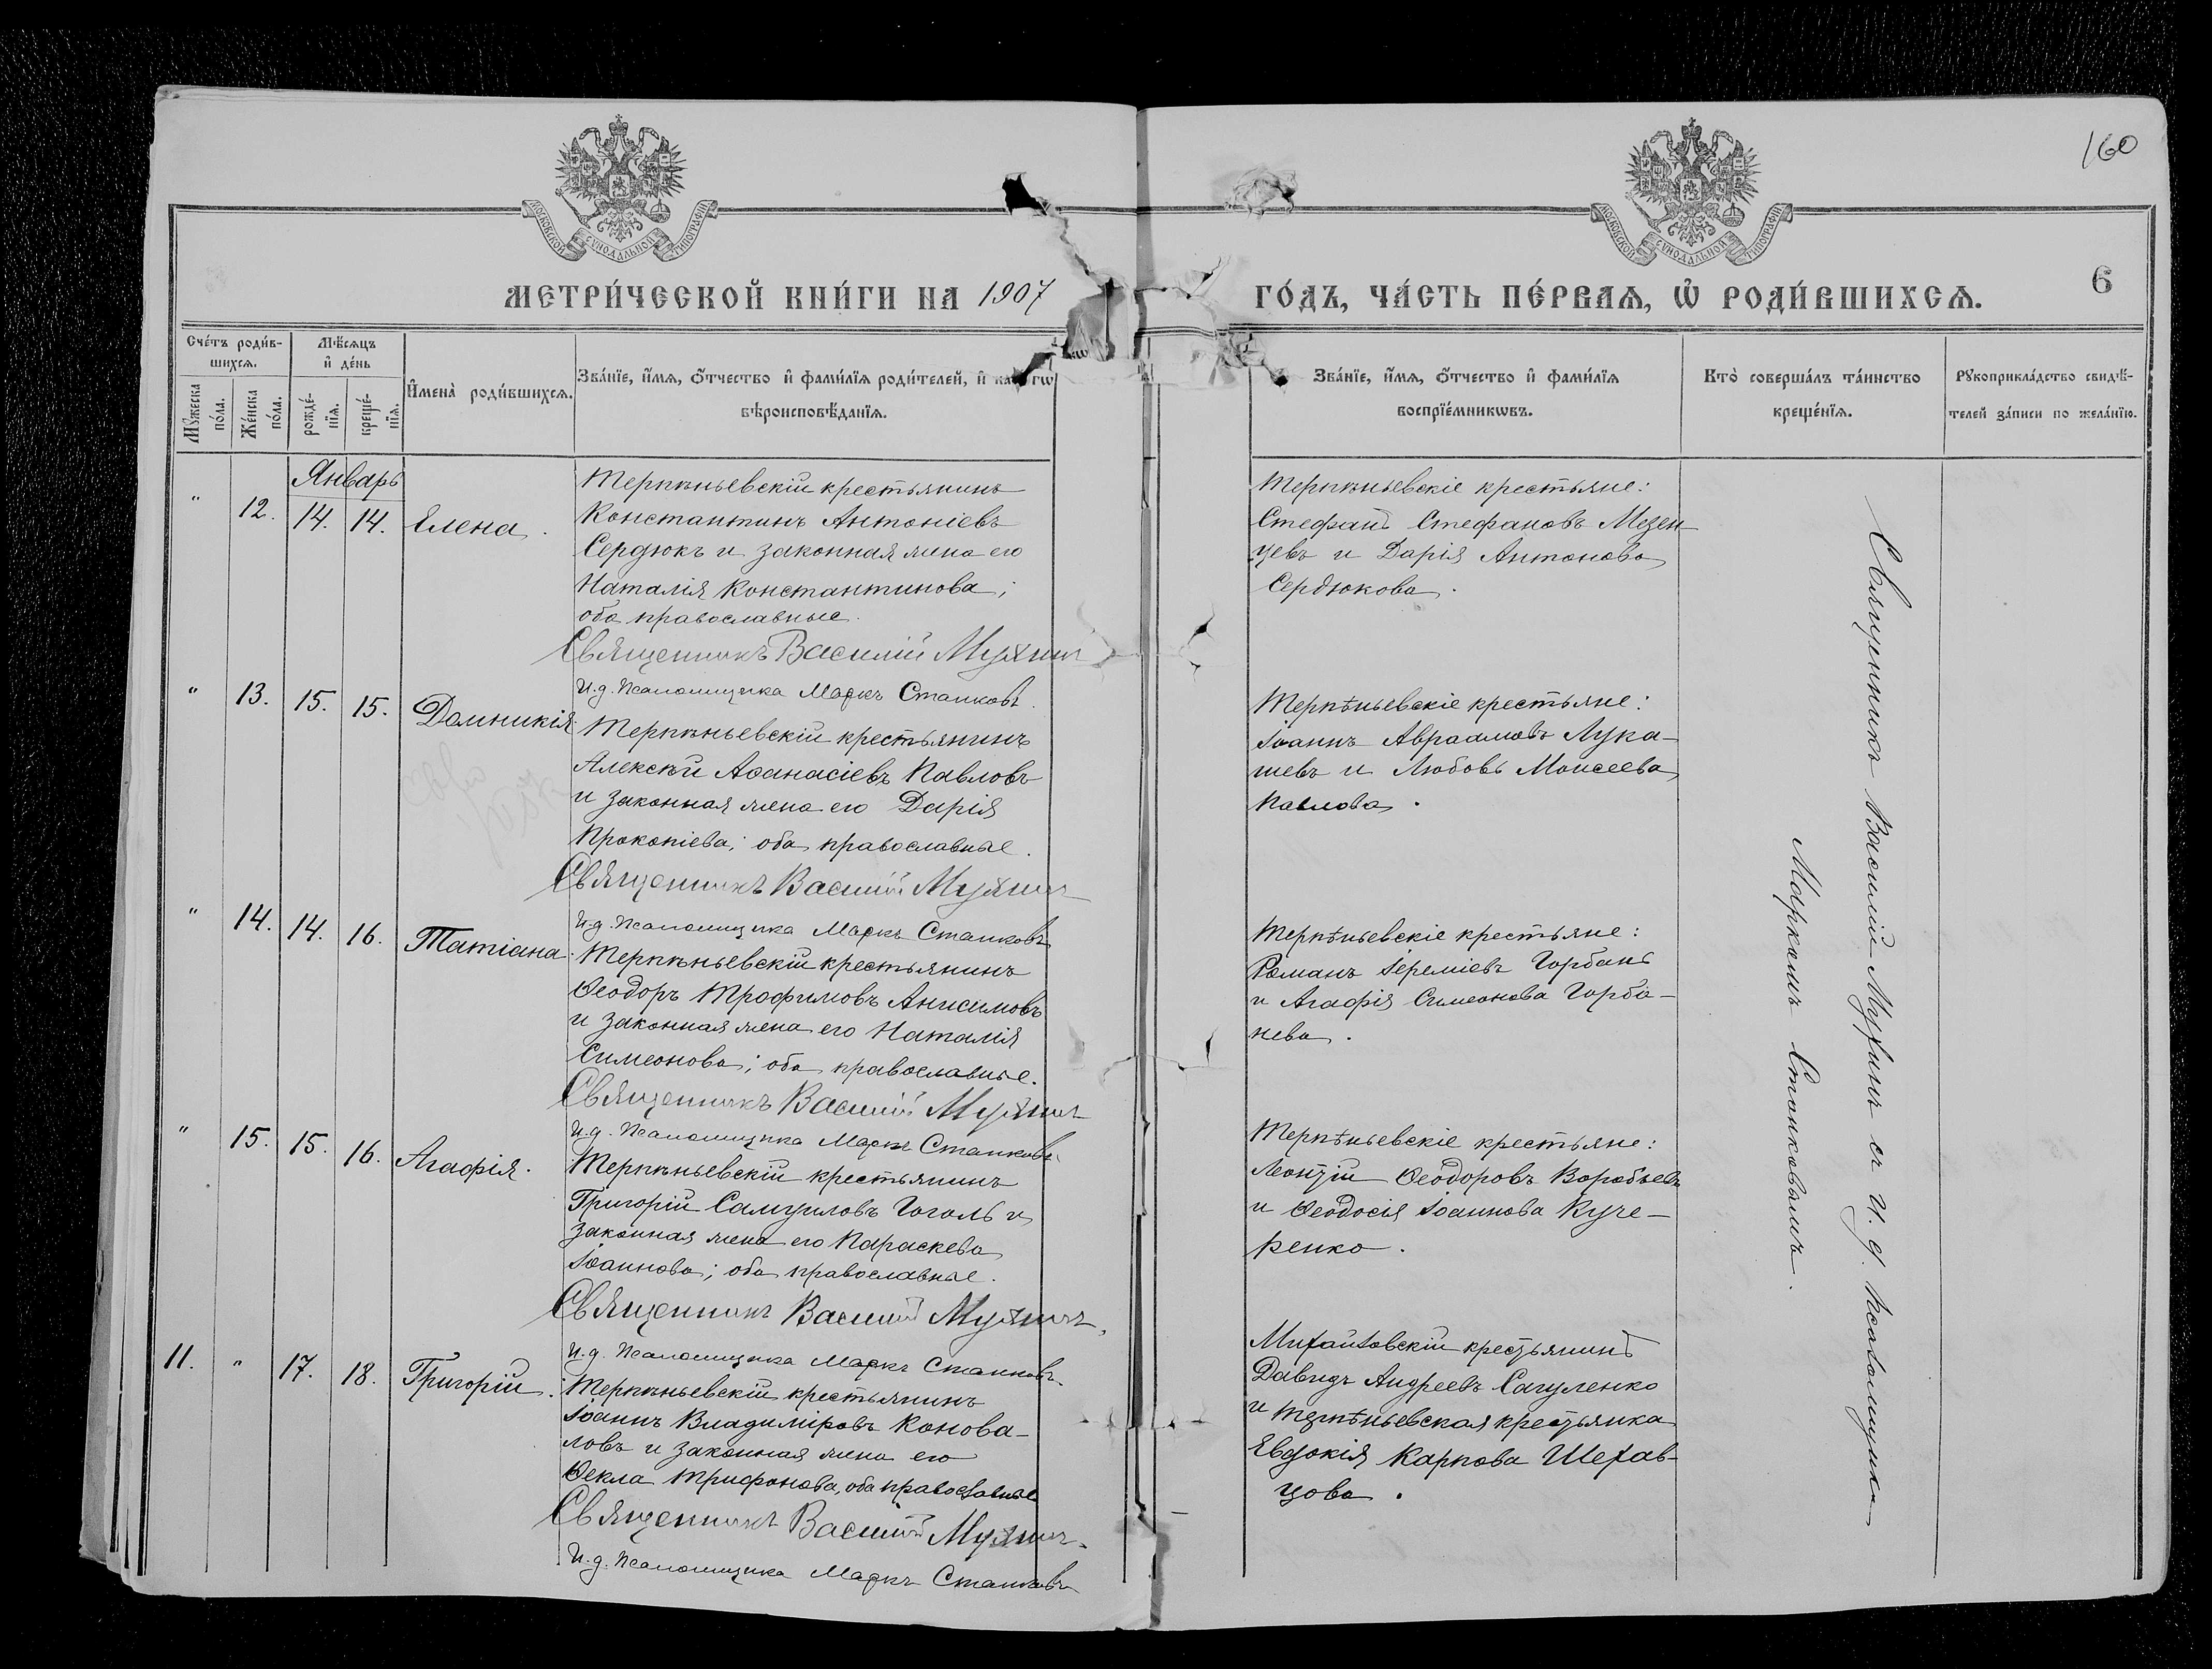 160
МОСКОВСКОЙ СѴНОДАЛЬНОЙ ТИПОГРАФІИ
МОСКОВСКОЙ СѴНОДАЛЬНОЙ ТИПОГРАФІИ
МЕТРИ́ЧЕСКОЙ КНИ́ГИ НА 1907
ГО́ДЪ, ЧА́СТЬ ПЕ́РВАѦ, Ѡ҆ РОДИ́ВШИХСѦ.
6
Сче́тъ роди́в-
шихсѧ.
Мѣ́сѧцъ
и҆ де́нь
Мꙋ́жеска
по́ла.
Же́нска
по́ла.
рожде́-
нїѧ.
креще́-
нїѧ.
И҆мена̀ роди́вшихсѧ.
Зва́нїе, и҆́мѧ, ѻ҆́тчество и҆ фами́лїѧ роди́телей, и҆
вѣроисповѣ́данїѧ.
Зва́нїе, и҆́мѧ, ѻ҆́тчество и҆ фами́лїѧ
воспрїе́мникѡвъ.
Кто̀ соверша́лъ та́инство
креще́нїѧ.
Рꙋкоприкла́дство свидѣ́-
телей за́писи по жела́нїю.
Январь
" 12. 14. 14. Елена.
Терпѣньевскій крестьянинъ
Константинъ Антоніевъ
Сердюкъ и законная жена его
Наталія Константинова;
оба православные.
Священникъ Василій Мухинъ
И.д. Псаломщика Маркъ Станковъ.
Терпѣньевскіе крестьяне:
Стефанъ Стефановъ Мезен-
цевъ и Дарія Антонова
Сердюкова.
" 13. 15. 15. Домникія.
Терпѣньевскій крестьянинъ
Алексѣй Аѳанасіевъ Павловъ
и законная жена его Дарія
Прокопіева; оба православные.
Священникъ Василій Мухинъ
И.д. Псаломщика Маркъ Станковъ
Терпѣньевскіе крестьяне:
Іоаннъ Авраамовъ Лука-
шевъ и Любовь Моисеева
Павлова.
" 14. 14. 16. Татіана.
Терпѣньевскій крестьянинъ
Ѳеодоръ Трофимовъ Анисимовъ
и законная жена его Наталія
Симеонова; оба православные.
Священникъ Василій Мухинъ
И.д. Псаломщика Маркъ Станковъ
Терпѣньевскіе крестьяне:
Романъ Іереміевъ Горбань
и Агафія Симеонова Горба-
нева.
" 15. 15. 16. Агафія.
Терпѣньевскій крестьянинъ
Григорій Самуиловъ Гоголь и
законная жена его Параскева
Іоаннова; оба православные.
Священникъ Василій Мухинъ.
И.д. Псаломщика Маркъ Станковъ.
Терпѣньевскіе крестьяне:
Леонтій Ѳеодоровъ Воробьевъ
и Ѳеодосія Іоаннова Куче-
ренко.
11. " 17. 18. Григорій.
Терпѣньевскій крестьянинъ
Іоаннъ Владиміровъ Конова-
ловъ и законная жена его
Ѳекла Трифонова, оба православные
Священникъ Василій Мухинъ.
И.д. Псаломщика Маркъ Станковъ
Михайловскій крестьянинъ
Давидъ Андреевъ Сагуленко
и терпѣньевская крестьянка
Евдокія Карпова Шехав-
цова.
Священникъ Василій Мухинъ съ И.д. Псаломщика
Маркомъ Станковымъ.